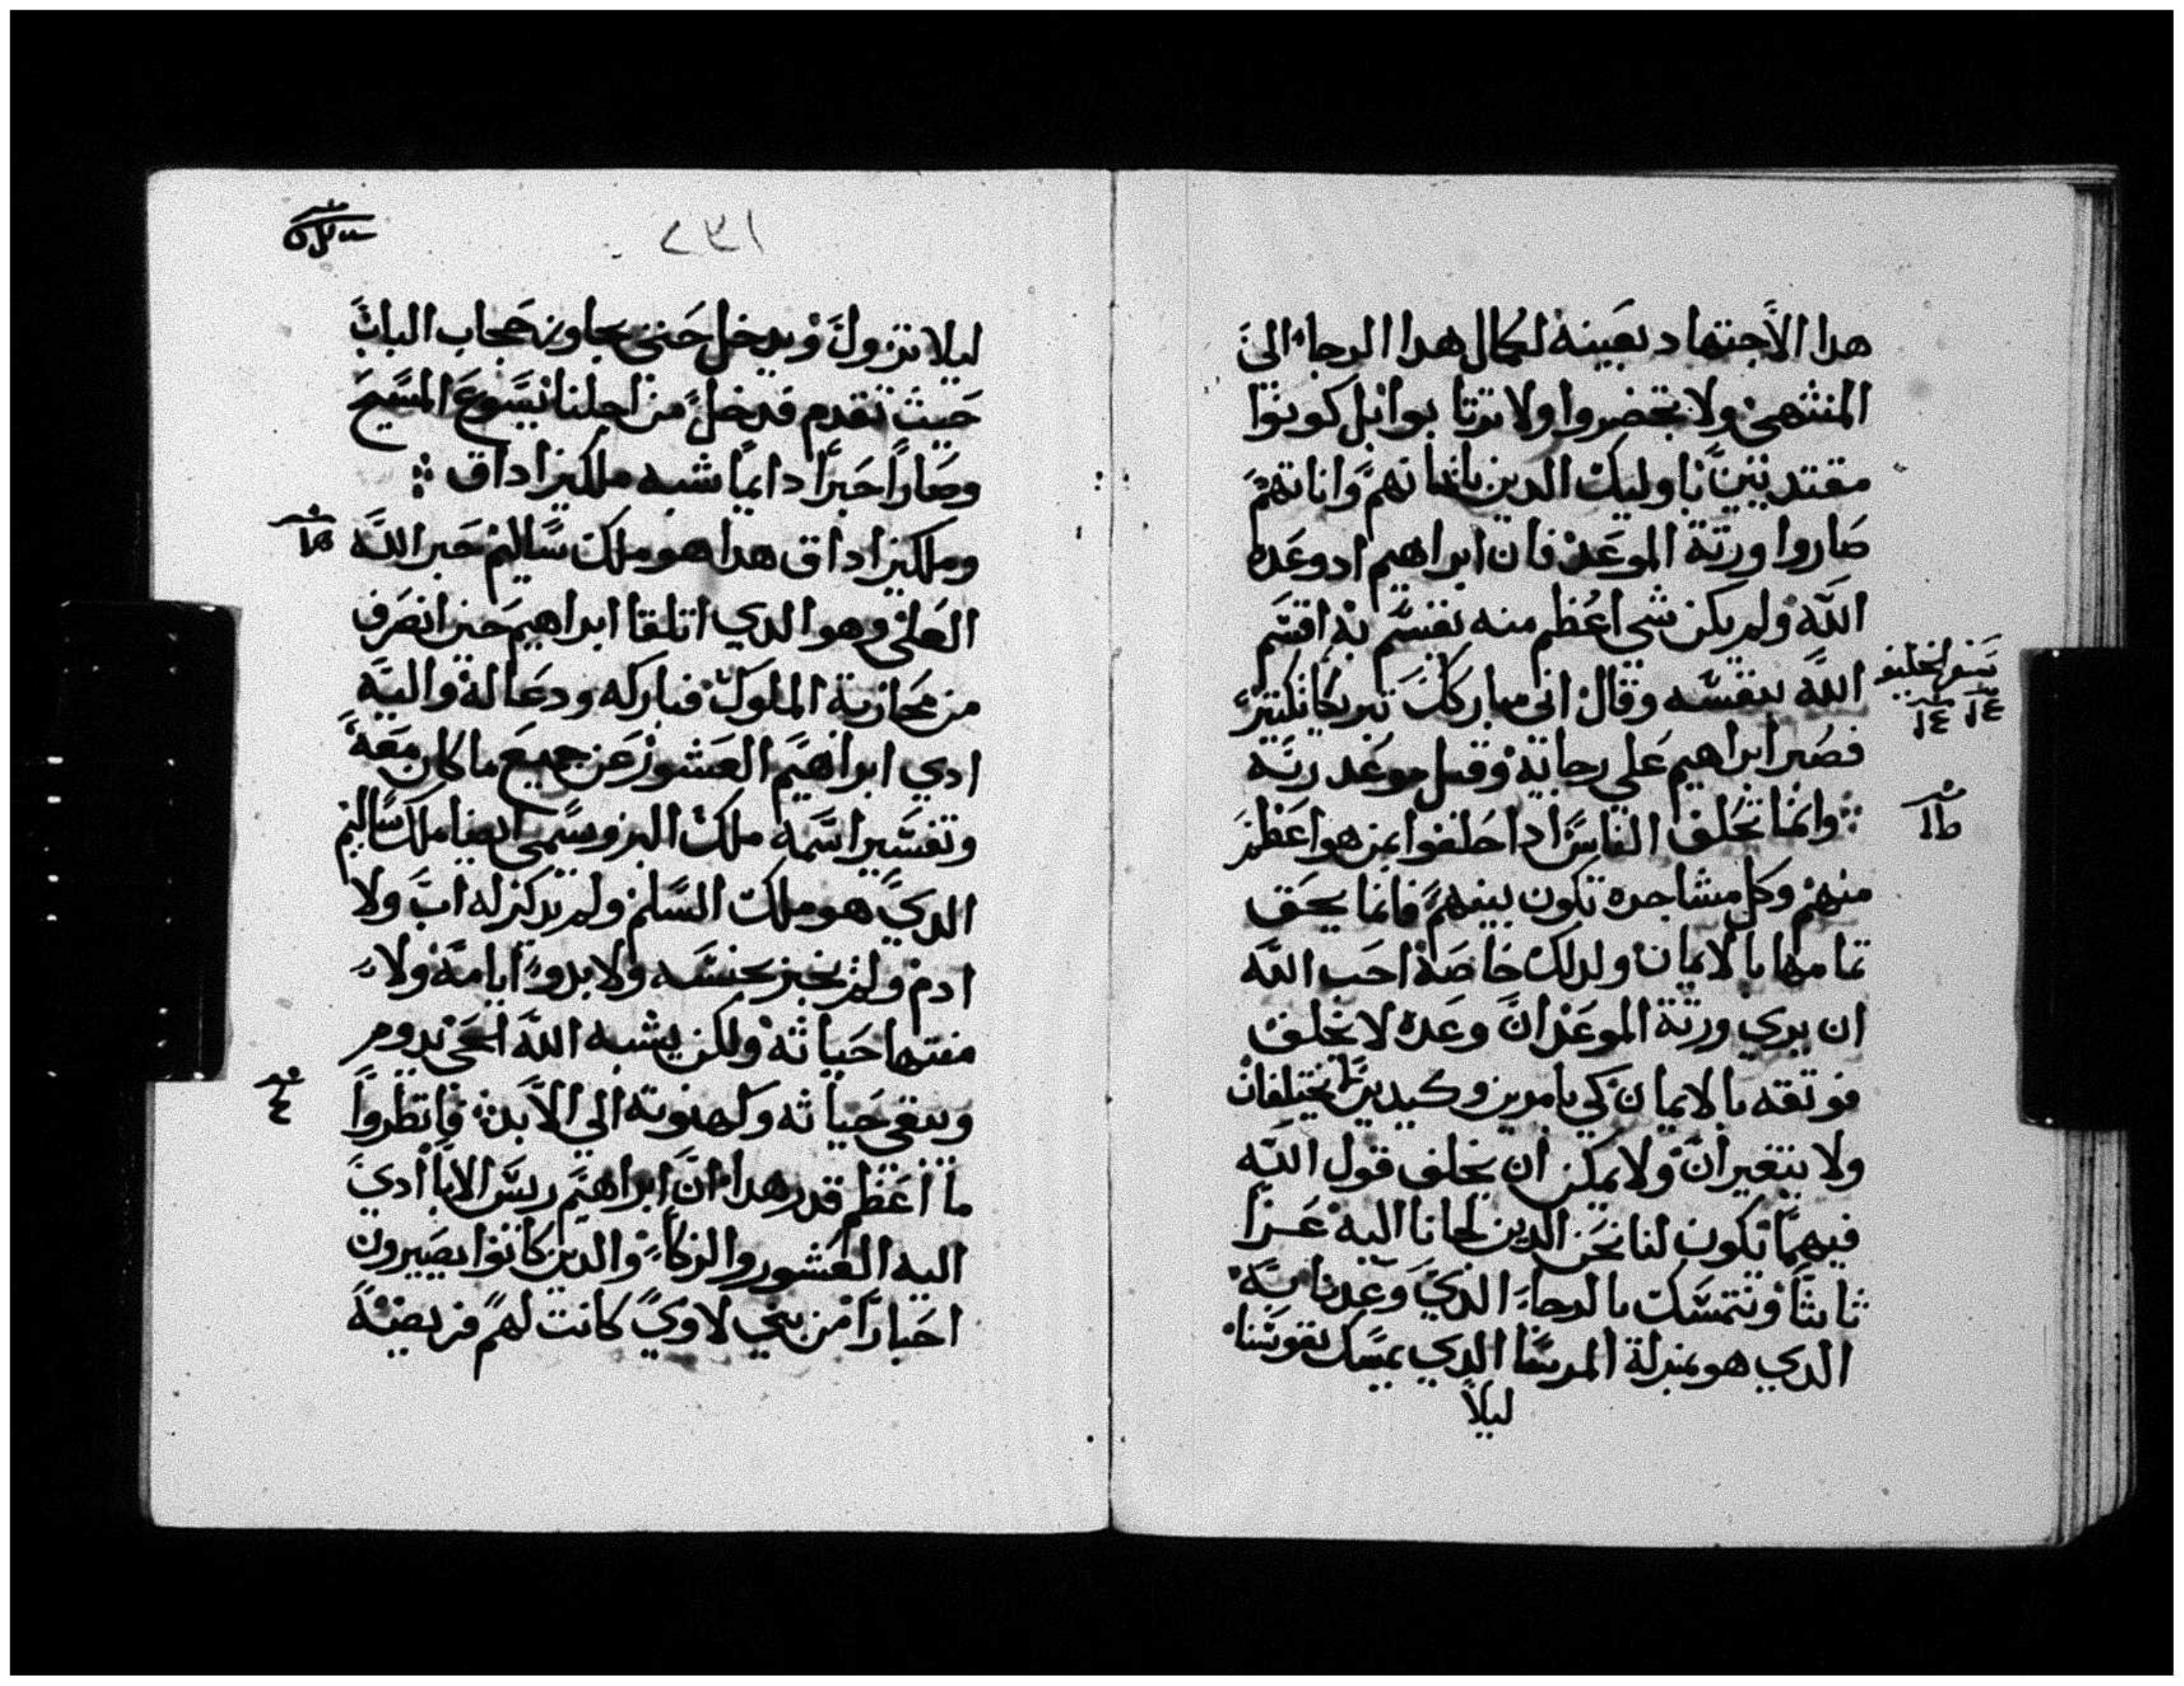 هدا الاجتهاد بعينه لكمال هدا الرجاء الى
المنتهى ولا تخضروا ولا ترتابوا بل كونوا
مقتديين باوليك الدين بايمانهم واناتهم
صاروا ورثة الموعد فان ابراهيم اد وعده
الله ولم يكن شي اعظم منه يقسم به اقسم
الله بنفسه وقال اني مباركك تبريكا كثيرا
سفر الخليقه
فصبر ابراهيم علي رجايه وقبل موعد ربه
وانما تحلف الناس ادا حلفوا بمن هو اعظم
منهم وكل مشاجره تكون بينهم فانما يحق
تمامها بالايمان ولدلك خاصة احب الله
ان يري ورثة الموعد ان وعده لا يخلف
فوثقه بالايمان كي بامرين وكيدين لا يختلفان
ولا يتغيران ولا يمكن ان يخلف قول الله
فيهما تكون لنا نحن الدين لجانا اليه عزا
ثابتا ونتمسك بالرجاء الدي وعدنا به
الدي هو بمنزلة المرسا الدي يمسك نفوسنا
ليلا
٢٣١
ليلا تزول ويدخل حتى يجاوز حجاب الباب
حيث تقدم فدخل من اجلنا يسوع المسيح
وصار حبرا دايما شبه ملكيزاداق
وملكيزاداق هدا هو ملك ساليم حبر الله
العلي وهو الدي اتلقا ابراهيم حين انصرف
من محاربة الملوك فباركه ودعا له واليه
ادي ابراهيم العشور عن جميع ما كان معه
وتفسير اسمه ملك البر وسمى ايضا ملك ساليم
الدي هو ملك السلم ولم يدكر له اب ولا
ام ولم يخبر بجنسه ولا بدو ايامه ولا
منتها حياته ولكن يشبه الله الحي يدوم
ويبقى حياته وكهنوته الي الابد فانظروا
ما اعظم قدر هدا ان ابراهيم ريس الابا ادي
اليه العشور والزكاء والدين كانوا يصيرون
احبارا من بني لاوي كانت لهم فريضة